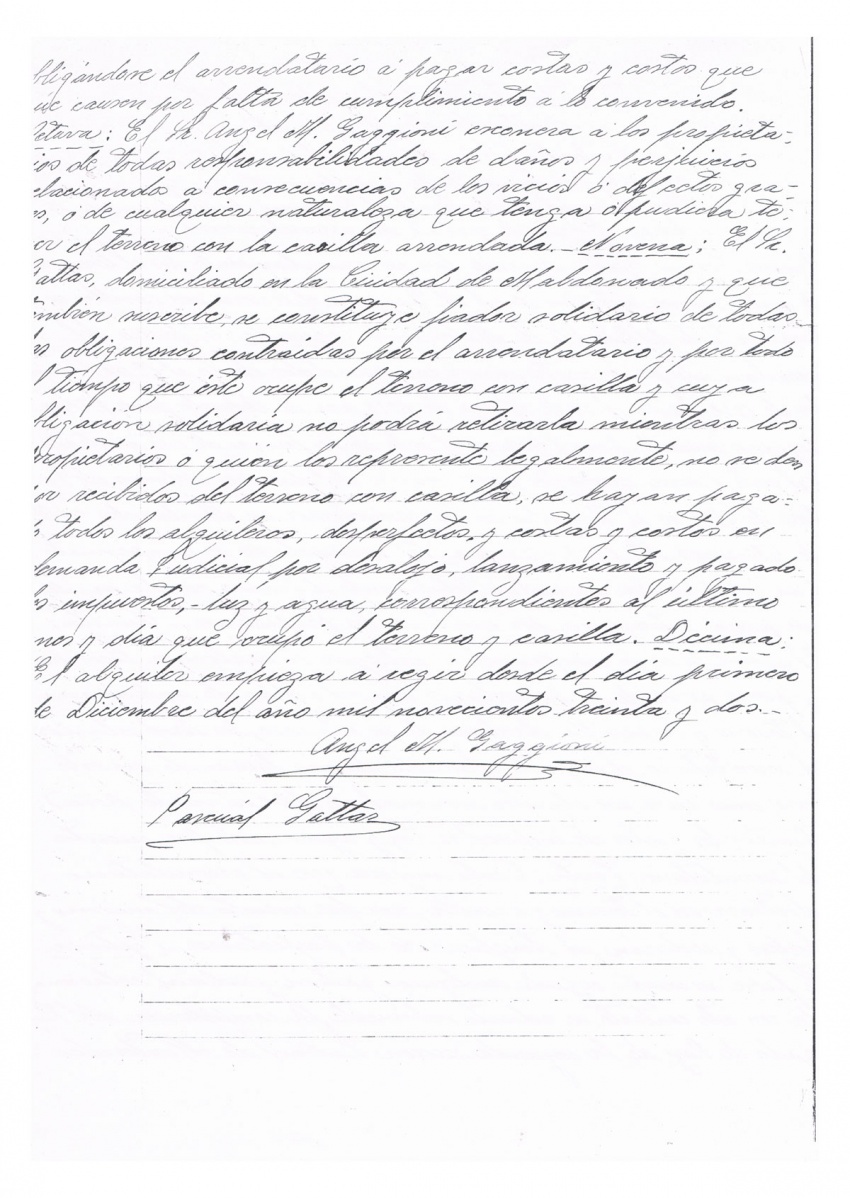 bligándose el arrendatario á pagar costas y costos que
ue causen por falta de cumplimiento á lo convenido.
ctava: El Sr. Angel M. Gaggioni exonera á los propieta-
ios de todas responsabilidades de daños y perjuicios
elacionado a consecuencias de los vicios ó defectos gra-
es, ó de cualquier naturaleza que tenga ó pudiesa te-
er el terreno con la casilla arrendada. Novena: El Sr.
attas, domiciliado en la Ciudad de Maldonado y que
mbién suscribe, se constituye fiador solidario de todas
s obligaciones contraídas por el arrendatario y, por todo
l tiempo que éste ocupe el terreno con casilla y cuya
bligación solidaria no podrá retirarla mientras los
ropietarios ó quién los represente legalmente, no se den
or recibidos del terreno con casilla, se hayan paga-
s todos los alquileres, desperfectos, y costas y costos en
emanda Judicial por desalojo, lanzamiento y pagado
s impuestos,- luz y agua, correspondientes al último
mes y día que ocupó el terreno y casilla. Décima:
El alquiler empieza á regir desde el día primero
de Diciembre del año mil novecientos treinta y dos.-
Angel M. Gaggioni
Pascuál Gattas